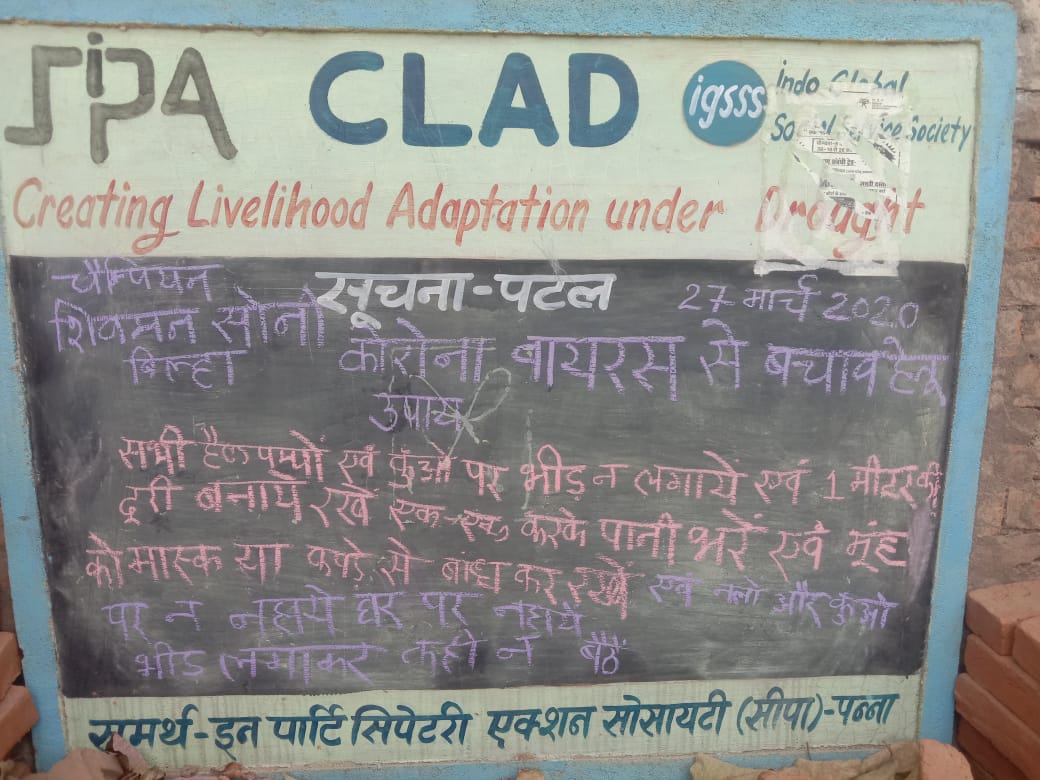 SIPA CLAD igsss Indo Global
Social Service Society
Creating Livelihood Adaptation under Drought
चैम्पियन सूचना-पटल 27 मार्च 2020
सोनी
बिल्हा
कोरोना वायरस से बचाव हेतू
उपाय
सभी हैण्डपम्पों एवं कुंओ पर भीड़ न लगायें एवं 1 मीटर की
दूरी बनाये रखे एक-एक करके पानी भरें एवं मूंह
को मास्क या कपड़े से बांध कर रखें एवं नलो और कुंओ
पर न नहाये घर पर नहाये
भीड़ लगाकर कही न बैठें
समर्थ-इन पार्टिसिपेटरी एक्शन सोसायटी (सीपा)-पन्ना